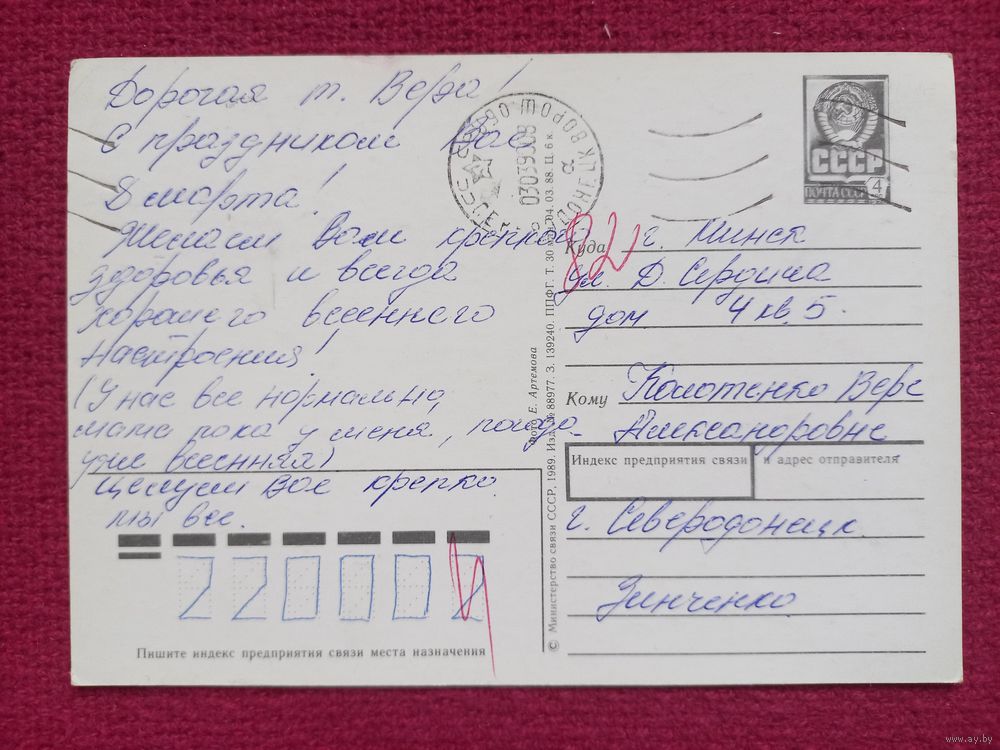 Дорогая т. Вера!
С праздником Вас
8 марта!
Желаем Вам крепкого
здоровья и всегда
хорошего весеннего
настроения!
(У нас все нормально,
мама пока у меня, погода
уже весенняя)
Целуем Вас крепко
мы все.
22000
Пишите индекс предприятия связи места назначения
© Министерство связи СССР, 1989. Изд. № 88977. З. 139240. ППФГ. Т. 30 04.03.88. Ц. 6 к.
Фото Е. Артемова
СССР
ПОЧТА СССР 4
82
Куда г. Минск
ул. Д. Сердича
дом 4 кв. 5.
Кому Колотенко Вере
Александровне
Индекс предприятия связи и адрес отправителя
г. Северодонецк
Зинченко
www.ay.by